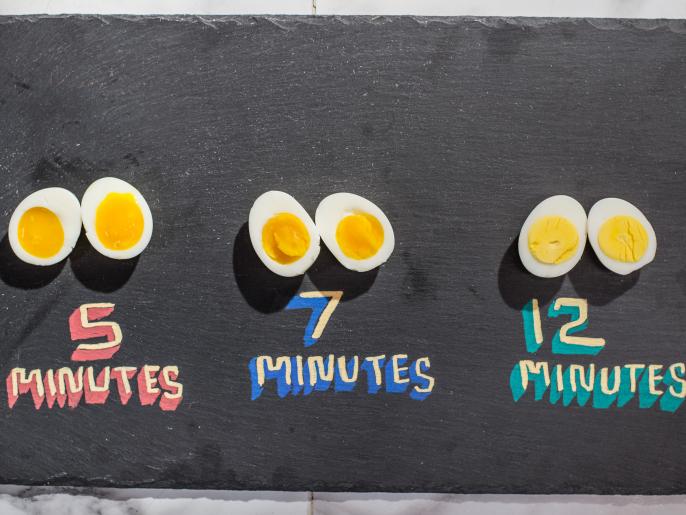 5
MINUTES
7
MINUTES
12
MINUTES